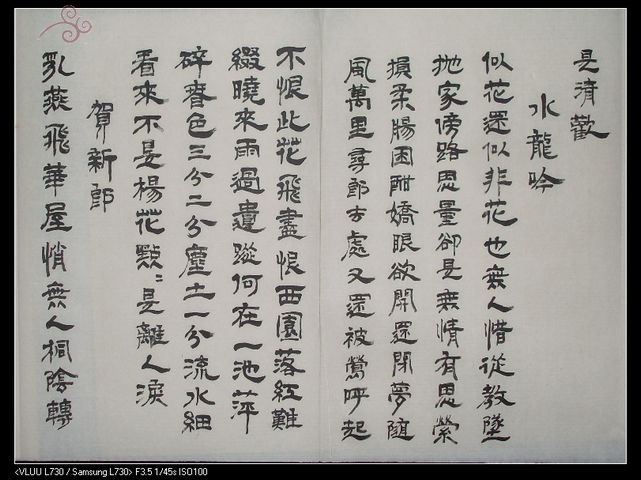 是清歡
水龍吟
似花還似非花也無人惜從教墜
抛家傍路思量卻是無情有思縈
損柔腸困酣嬌眼欲開還閉夢隨
風萬里尋郎去處又還被鶯呼起
不恨此花飛盡恨西園落紅難
綴曉來雨過遺蹤何在一池萍
碎春色三分二分塵土一分流水細
看來不是楊花點〻是離人淚
賀新郎
乳燕飛華屋悄無人桐陰轉
<VLUU L730 / Samsung L730> F3.5 1/45s ISO100